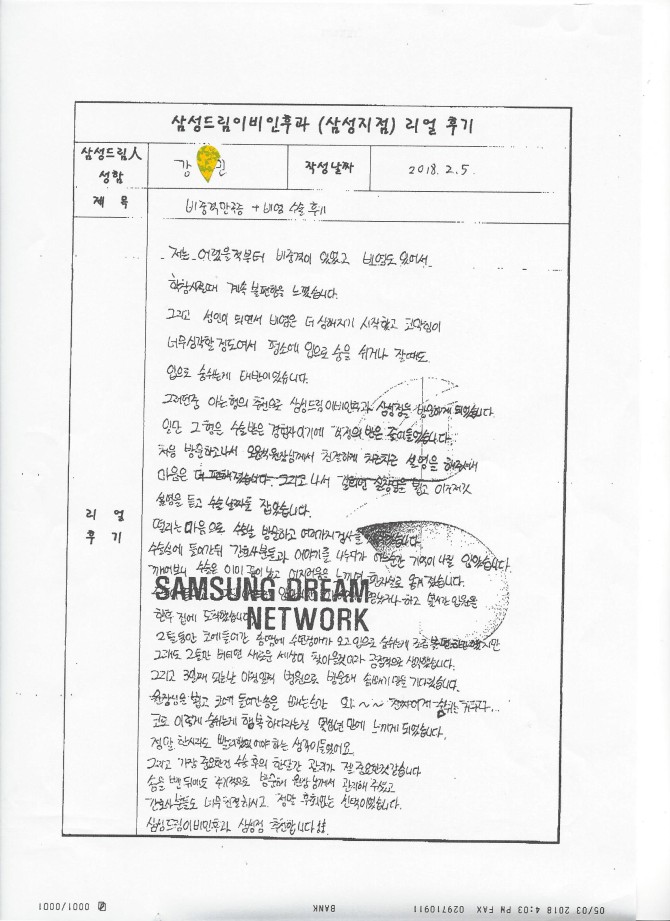 삼성드림이비인후과 (삼성지점) 리얼 후기
삼성드림人
성함
강 진
작성날짜
2018. 2. 5.
제 목
비중격만곡증 + 비염 수술 후기
리 얼
후 기
저는 어렸을적부터 비중격이 있었고 비염도 있어서
학창시절때 계속 불편함을 느꼈습니다.
그리고 성인이 되면서 비염은 더 심해지기 시작했고 코막힘이
너무심각할 정도여서 평소에 입으로 숨을 쉬거나 잘때도
입으로 숨쉬는게 태반이었습니다.
그러던중 아는형의 추천으로 삼성드림이비인후과 삼성점을 방문하게 되었습니다.
일단 그 형은 수술받은 경험자이기에 걱정의 반은 줄어들었습니다.
처음 방문하고나서 원장님께서 친절하게 차근차근 설명을 해주셔서
마음은 더 편해졌습니다. 그리고 나서 설명을 듣고 이것저것
설명을 듣고 수술날짜를 잡았습니다.
떨리는 마음으로 수술날 방문하고 여러가지 검사를
수술실에 들어간뒤 간호사분들과 이야기를 나누다가 어느순간 기억이 나질 않았습니다.
깨어보니 수술은 이미 끝이 났고 어지러움을 느끼며 옮겨 졌습니다.
SAMSUNG DREAM
NETWORK
한후 집에 도착했습니다
그 틀동안 코에 들어간 솜땜에 오고 입으로 숨쉬는게 조금 불편하긴 했지만
그래도 그동안 버티면 새로운 세상이 찾아올것이라 긍정적으로 생각했습니다.
그리고 3일째 되는날 아침일찍 병원으로 방문해 솜빼기만을 기다렸습니다.
원장님을 뵙고 코에 들어간솜을 빼는순간 와~~ 숨쉬는 거구나...
코로 이렇게 숨쉬는게 행복 하다라는걸 몇십년 만에 느끼게 되었습니다.
정말 한시라도 빨리했었어야 하는 생각이들었어요.
그리고 가장 중요한건 수술 후의 한달간 관리가 젤 중요한것 같습니다
솜을 뺀 뒤에도 주기적으로 방문해 원장님께서 관리해 주셨고
간호사분들도 너무 친절하시고 정말 후회없는 선택이였습니다.
삼성드림이비인후과 삼성점 추천합니다
05/03 2018 4:03 PM FAX 029710911
BANK
0001/0001